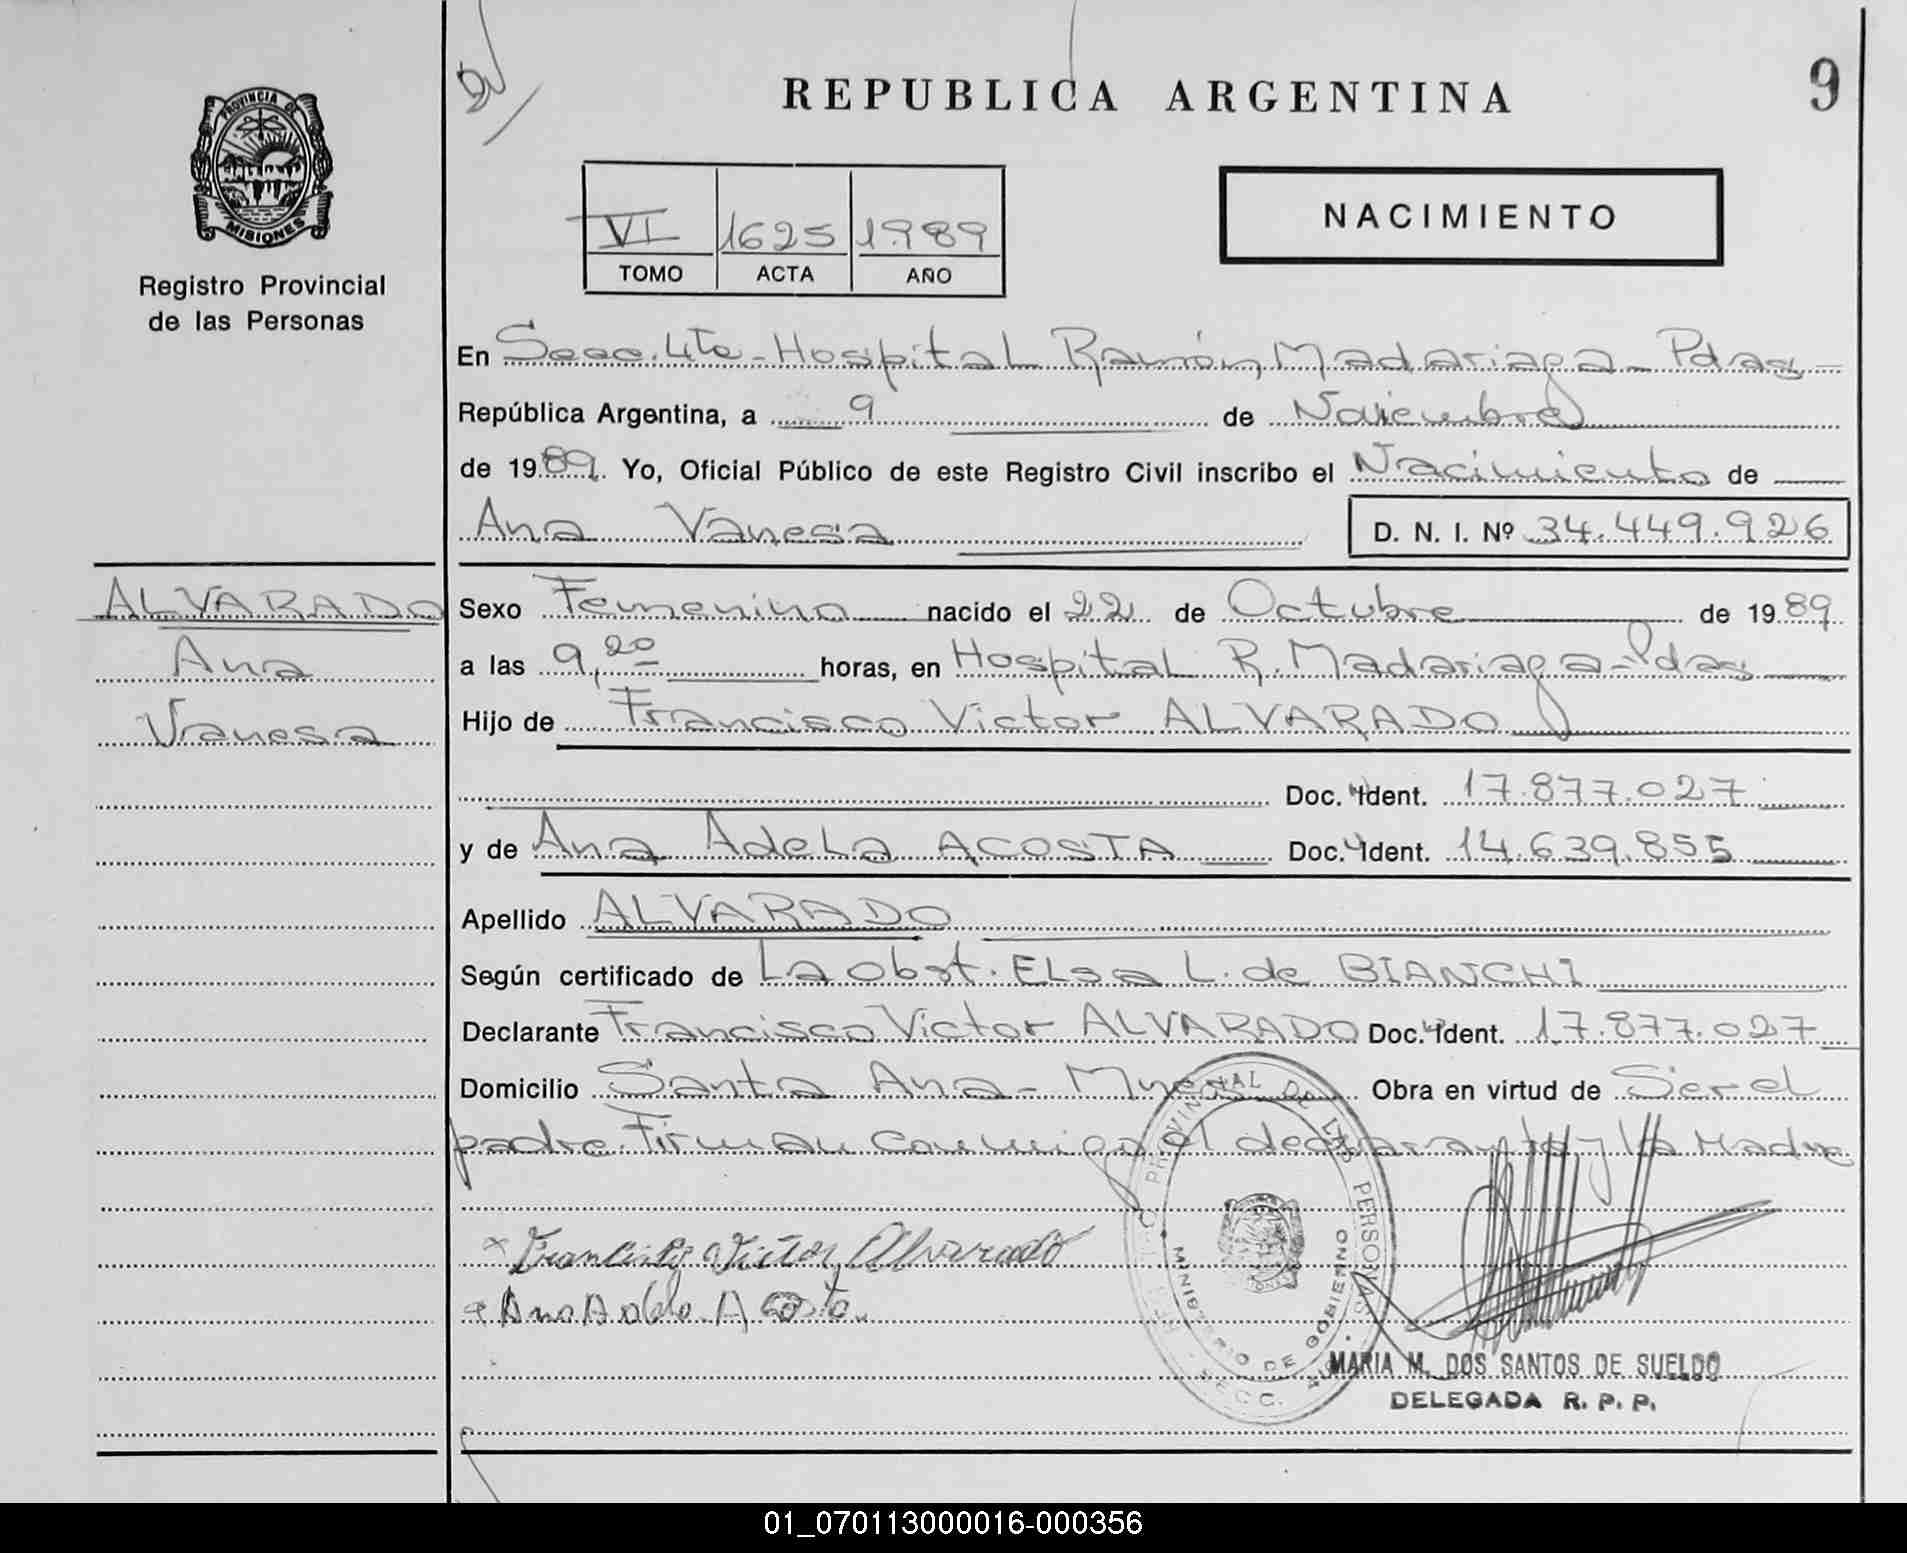 REPUBLICA ARGENTINA
9
PROVINCIA DE
MISIONES
Registro Provincial
de las Personas
VI 1625 1989
TOMO ACTA AÑO
NACIMIENTO
En Secc. 4ta - Hospital Ramón Madariaga - Pdas -
República Argentina, a 9 de Noviembre
de 1989. Yo, Oficial Público de este Registro Civil inscribo el Nacimiento de
Ana Vanesa D. N. I. Nº 34.449.926
ALVARADO
Ana
Vanesa
Sexo Femenino nacido el 22 de Octubre de 1989
a las 9,20 horas, en Hospital R. Madariaga - Pdas
Hijo de Francisco Victor ALVARADO
Doc. Ident. 17.877.027
y de Ana Adela ACOSTA Doc. Ident. 14.639.855
Apellido ALVARADO
Según certificado de La obst. Elsa L. de BIANCHI
Declarante Francisco Victor ALVARADO Doc. Ident. 17.877.027
Domicilio Santa Ana - Mnes Obra en virtud de Ser el
padre. Firman conmigo el declarante y la Madre
x Francisco Victor Alvarado
Ana Adela Acosta
PROVINCIAL DE LAS PERSONAS
MINISTERIO DE GOBIERNO
SECC. 4ta
MARIA M. DOS SANTOS DE SUELDO
DELEGADA R. P. P.
01_070113000016-000356